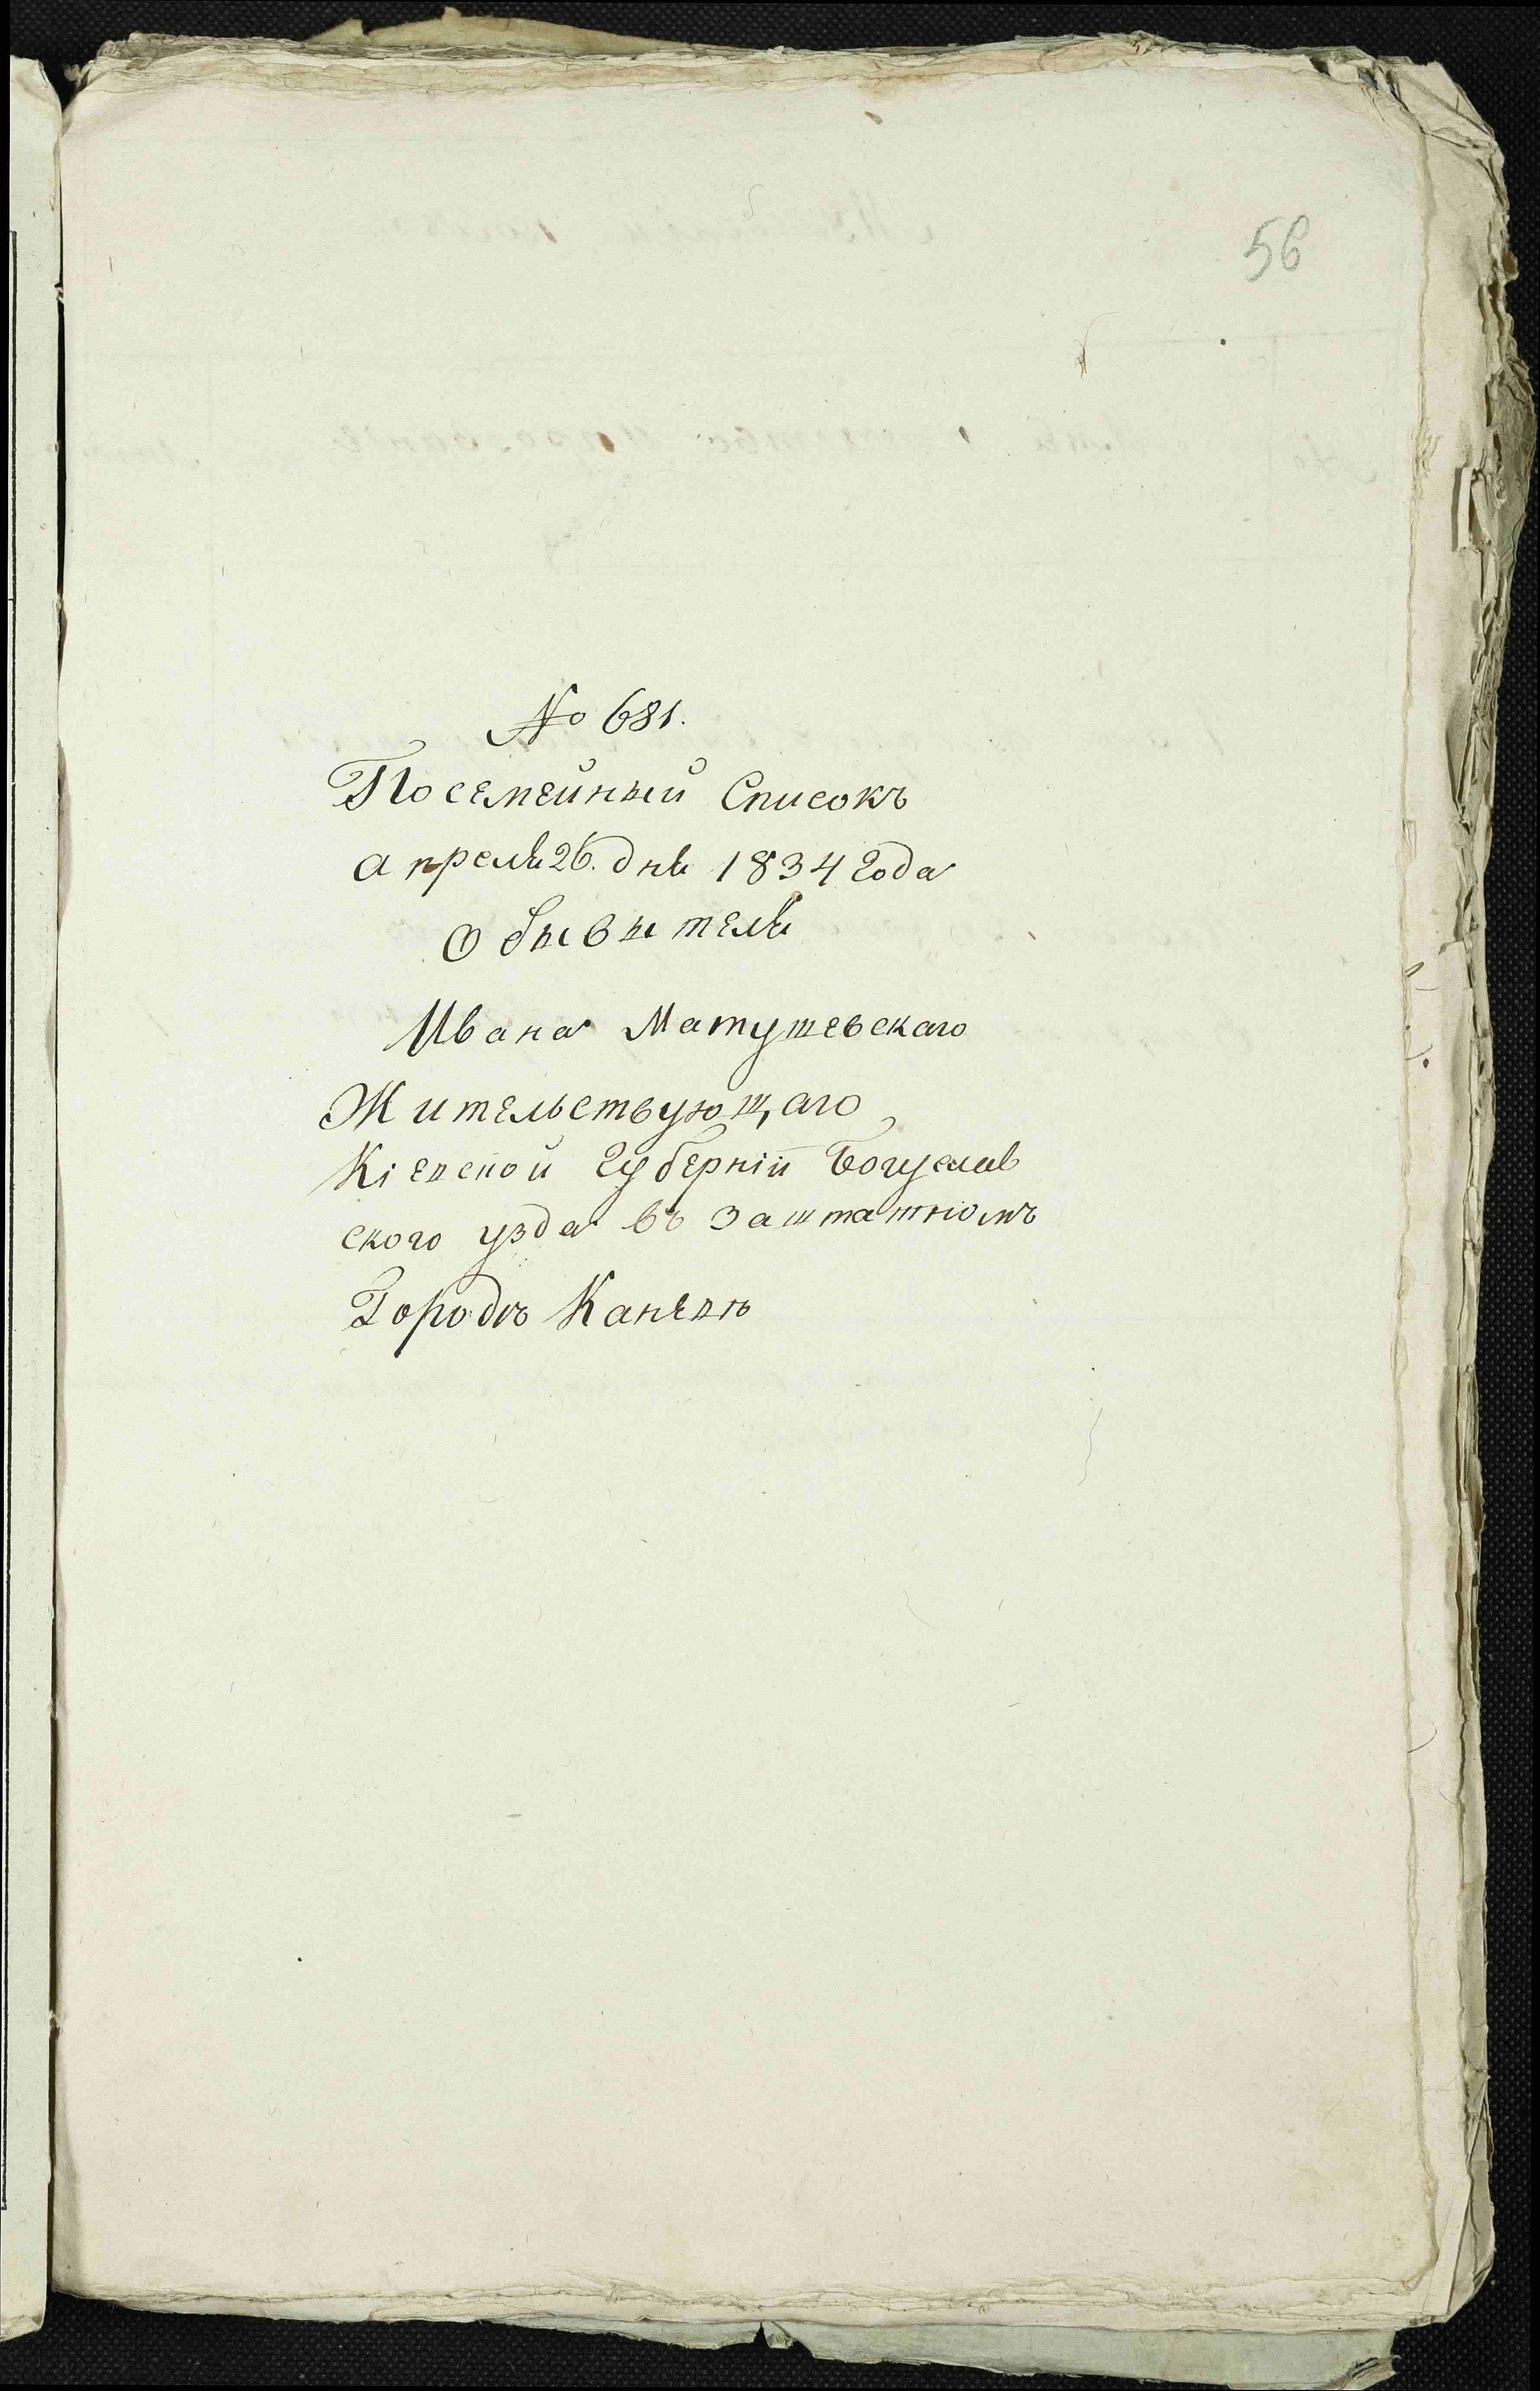 56
№ 681.
Посемейный Списокъ
апреля 26. дня 1834 года
Обывытеля
Ивана Матушевскаго
Жительствующаго
Кіевской губерніи Богуслав
ского узда въ заштатномъ
Городъ Каневъ